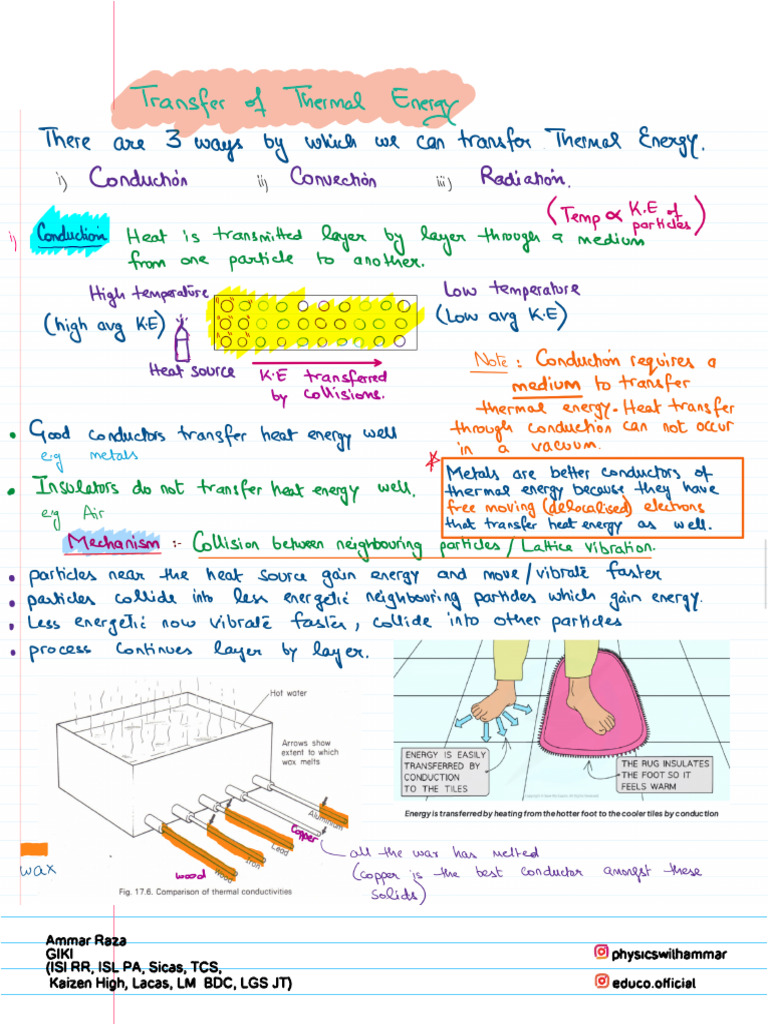 Transfer of Thermal Energy
There are 3 ways by which we can transfer Thermal Energy.
i) Conduction ii) Convection iii) Radiation.
(Temp ∝ K.E of particles)
i) Conduction Heat is transmitted layer by layer through a medium
from one particle to another.
High temperature
(high avg K.E)
Heat source
K.E transferred
by collisions.
Low temperature
(Low avg K.E)
Note: Conduction requires a
medium to transfer
thermal energy. Heat transfer
through conduction can not occur
in a vacuum.
• Good conductors transfer heat energy well
e.g metals
• Insulators do not transfer heat energy well.
e.g Air
* Metals are better conductors of
thermal energy because they have
free moving (delocalised) electrons
that transfer heat energy as well.
Mechanism :- Collision between neighbouring particles / Lattice vibration.
• particles near the heat source gain energy and move/vibrate faster
• particles collide into less energetic neighbouring particles which gain energy.
• Less energetic now vibrate faster, collide into other particles
• process continues layer by layer.
Hot water
Arrows show
extent to which
wax melts
Aluminium
Copper
Lead
Iron
Wood
wood
wax
Fig. 17.6. Comparison of thermal conductivities
ENERGY IS EASILY
TRANSFERRED BY
CONDUCTION
TO THE TILES
THE RUG INSULATES
THE FOOT SO IT
FEELS WARM
Energy is transferred by heating from the hotter foot to the cooler tiles by conduction
all the wax has melted
(copper is the best conductor amongst these
solids)
Ammar Raza
GIKI
(ISI RR, ISL PA, Sicas, TCS,
Kaizen High, Lacas, LM BDC, LGS JT)
physicswithammar
educo.official